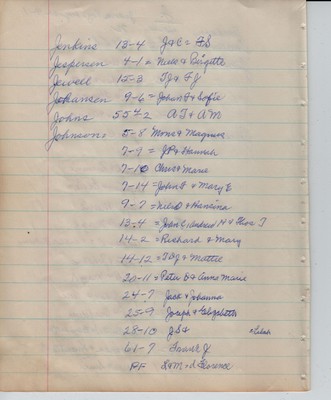 Jenkins 13-4 J & C = F S
Jesperson 4-1 = Niels & Birgette
Jewell 15-3 TJ & FJ
Johansen 9-6 = Johan F & Sofie
Johns 55-2 A J & A M
Johnsons 5-8 Mons & Magnus
7-9 = J P & Hannah
7-10 Chris & Marie
7-14 = John F & Mary E
9-7 = Nils O & Hansina
13-4 = John C, Andrew H & Thor T
14-2 = Richard & Mary
14-12 = T B J & Mattie
20-11 = Peter & Anna Marie
24-7 Jack & Johanna
25-9 Joseph & Elizabeth
28-10 J S &
61-7 Frank J
PF L & M = & Florence